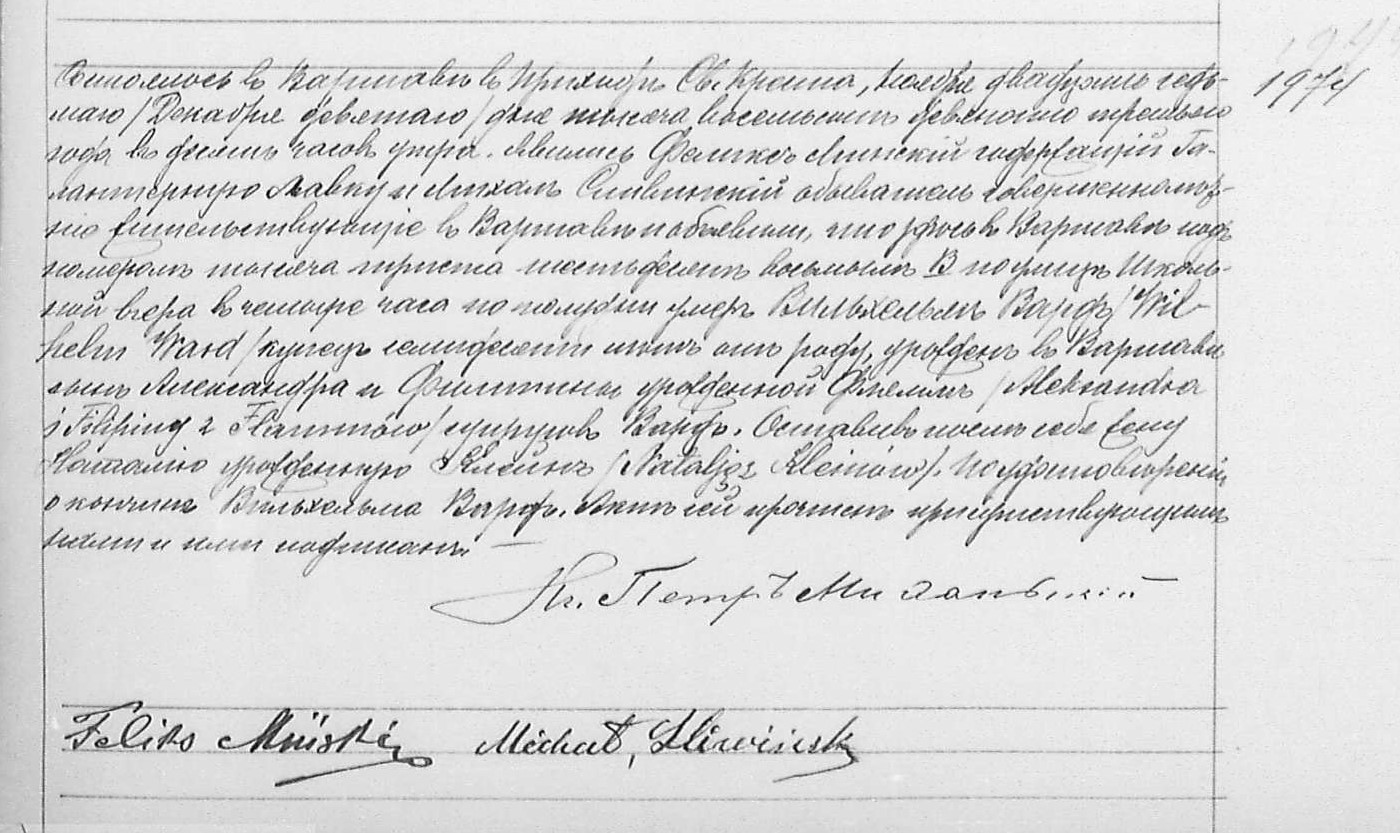 1974
Состоялось въ Варшавѣ въ Приходѣ Св. Креста, Ноября двадцать седь-
маго / Декабря девятаго / дня тысяча восемьсотъ девяносто третьяго
года въ десять часовъ утра. Явились Феликсъ Минскій содержащій Га-
лантерную Лавку и Михалъ Сливинскій обыватель совершеннолѣт-
ніе жительствующіе въ Варшавѣ и объявили, что здѣсь въ Варшавѣ подъ
номеромъ тысяча триста шестьдесятъ восьмымъ В по улицѣ Школь-
ной вчера въ четыре часа по полудни умеръ Вильхельмъ Вардъ / Wil-
helm Ward / купецъ семидесяти лѣтъ отъ роду, урожденъ въ Варшавѣ
сынъ Александра и Филипины урожденной Флеммъ / Aleksandra
i Filipiny z Flammów / супруговъ Вардъ. Оставивъ послѣ себя жену
Наталію урожденную Клейнъ / Natalją z Kleinów /. По удостовѣреніи
о кончинѣ Вильхельма Вардъ. Актъ сей прочтенъ присутствующимъ
нами и ими подписанъ. —
Кс. Петръ
Feliks Miński Michał Śliwiński